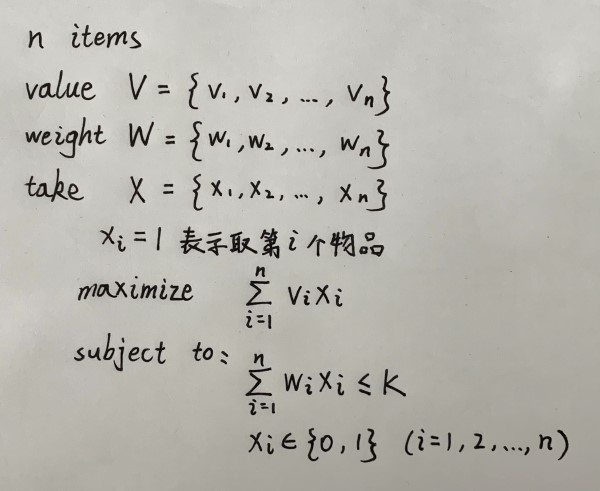 n items
value V = {v₁, v₂, ..., vₙ}
weight W = {w₁, w₂, ..., wₙ}
take X = {x₁, x₂, ..., xₙ}
xᵢ = 1 表示取第 i 个物品
maximize ∑ᵢ₌₁ⁿ vᵢxᵢ
subject to: ∑ᵢ₌₁ⁿ wᵢxᵢ ≤ K
xᵢ ∈ {0, 1} (i=1, 2, ..., n)